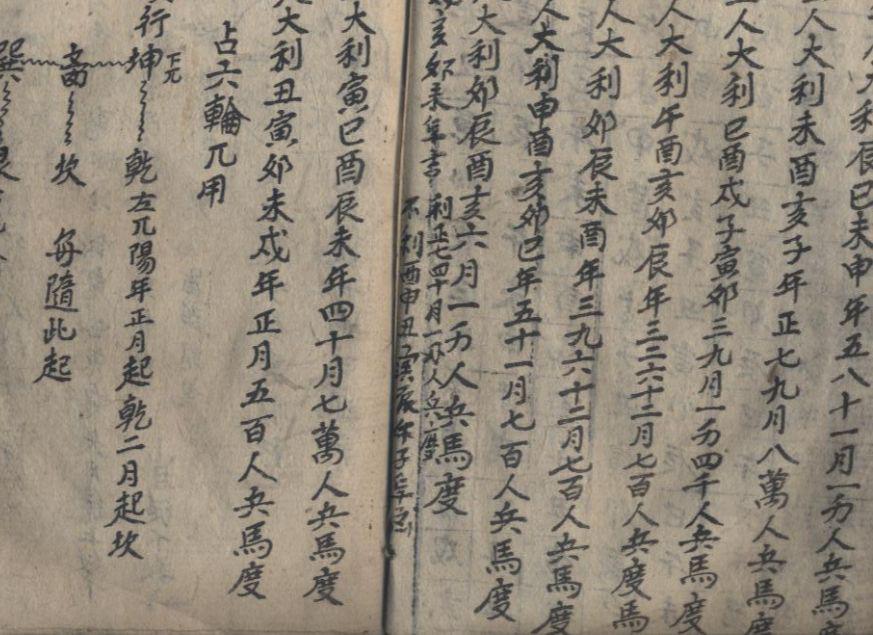 人大利辰巳未申年五八十一月一万人兵馬度
人大利未酉亥子年正七九月八萬人兵馬度
人大利巳酉戌子寅卯三九月一万四千人兵馬度
人大利午酉亥卯辰年三二六十二月七百人兵度馬
人大利卯辰未酉年三九六十二月七百人兵馬度
人大利申酉亥卯巳年五十一月七百人兵馬度
大利卯辰酉亥六月一万人兵馬度
亥卯未年
利正七四十月一万人兵
不利酉申丑
大利寅巳酉辰未年四十月七萬人兵馬度
大利丑寅卯未戌年正月五百人兵馬度
占六輪兀用
行坤 下兀
乾左兀陽年正月起乾二月起坎
坎 每隨此起
巽